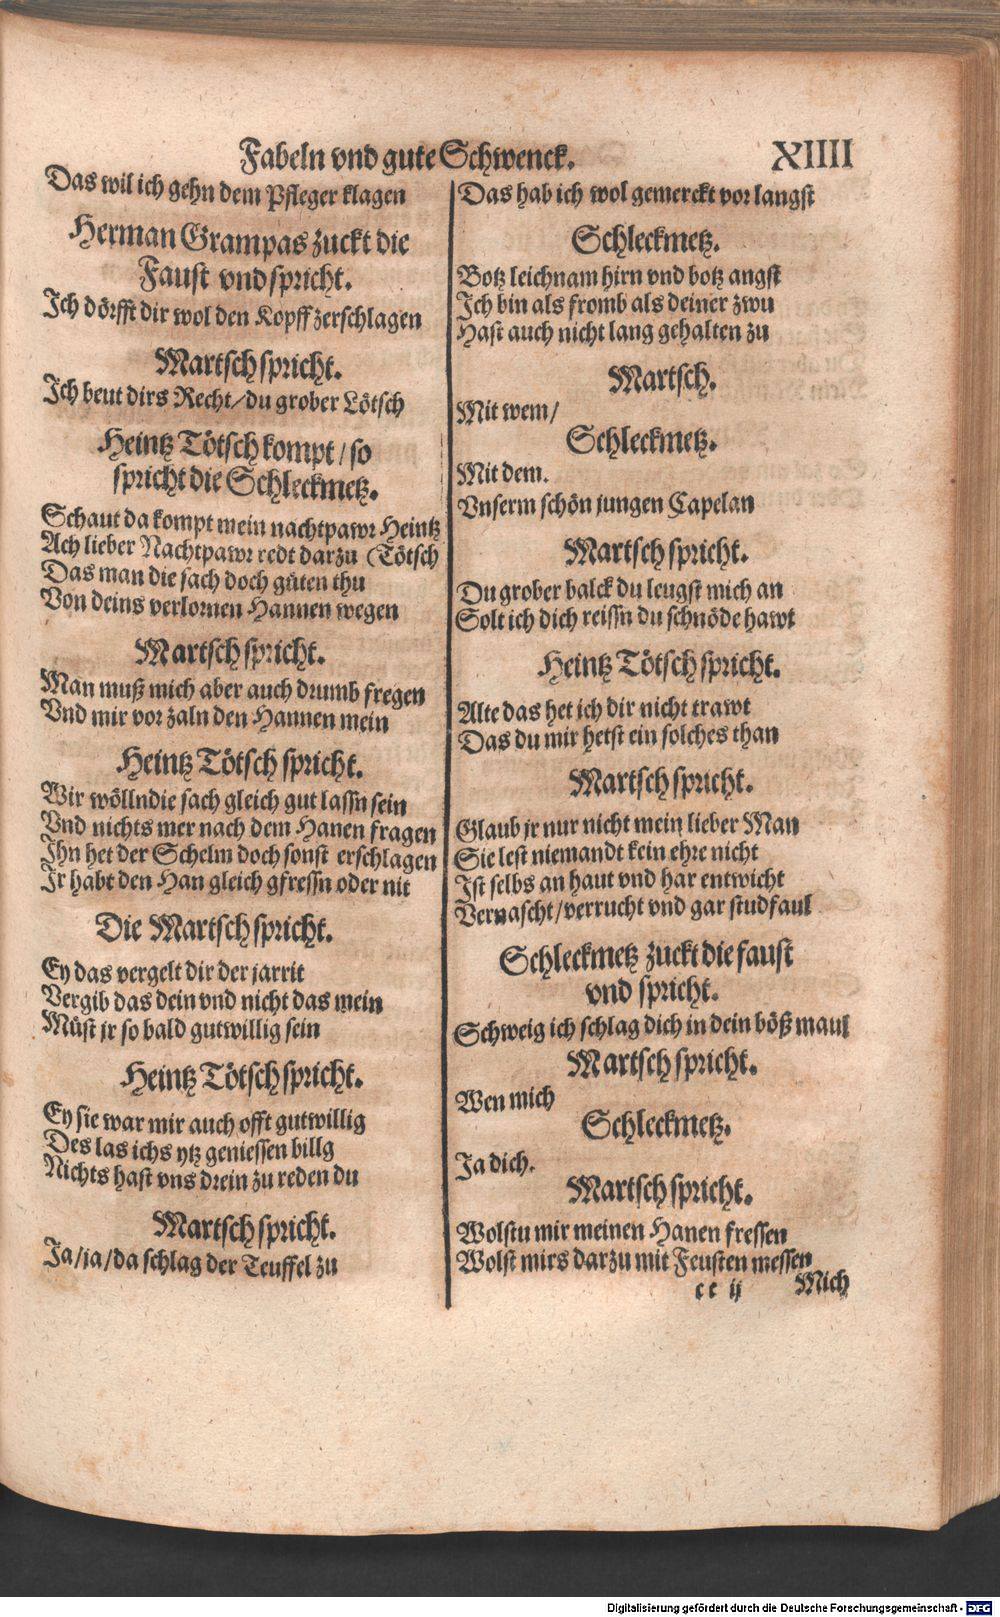 Fabeln vnd gute Schwenck.
XIIII
Das wil ich gehn dem Pfleger klagen
Herman Grampas zuckt die
Faust vnd spricht.
Ich dörfft dir wol den Kopff zerschlagen
Martsch spricht.
Ich beut dirs Recht/du grober Lötsch
Heintz Tötsch kompt/so
spricht die Schleckmetz.
Schaut da kompt mein nachtpawr Heintz
Ach lieber Nachtpawr redt darzu (Tötsch
Das man die sach doch güten thu
Von deins verlornen Hannen wegen
Martsch spricht.
Man muß mich aber auch drumb fregen
Vnd mir vor zaln den Hannen mein
Heintz Tötsch spricht.
Wir wölln die sach gleich gut lassn sein
Vnd nichts mer nach dem Hanen fragen
Ihn het der Schelm doch sonst erschlagen
Ir habt den Han gleich gfressn oder nit
Die Martsch spricht.
Ey das vergelt dir der jarrit
Vergib das dein vnd nicht das mein
Müst jr so bald gutwillig sein
Heintz Tötsch spricht.
Ey sie war mir auch offt gutwillig
Des las ichs ytz geniessen billg
Nichts hast vns drein zu reden du
Martsch spricht.
Ja/ja/da schlag der Teuffel zu
Das hab ich wol gemerckt vor langst
Schleckmetz.
Botz leichnam hirn vnd botz angst
Ich bin als fromb als deiner zwu
Hast auch nicht lang gehalten zu
Martsch.
Mit wem/
Schleckmetz.
Mit dem.
Vnserm schön jungen Capelan
Martsch spricht.
Du grober balck du leugst mich an
Solt ich dich reissn du schnöde hawt
Heintz Tötsch spricht.
Alte das het ich dir nicht trawt
Das du mir hetst ein solches than
Martsch spricht.
Glaub jr nur nicht mein lieber Man
Sie lest niemandt kein ehre nicht
Ist selbs an haut vnd har entwicht
Vernascht/verrucht vnd gar studfaul
Schleckmetz zuckt die faust
vnd spricht.
Schweig ich schlag dich in dein böß maul
Martsch spricht.
Wen mich
Schleckmetz.
Ja dich.
Martsch spricht.
Wolstu mir meinen Hanen fressen
Wolst mirs darzu mit Feusten messen
cc ij
Mich
Digitalisierung gefördert durch die Deutsche Forschungsgemeinschaft - DFG